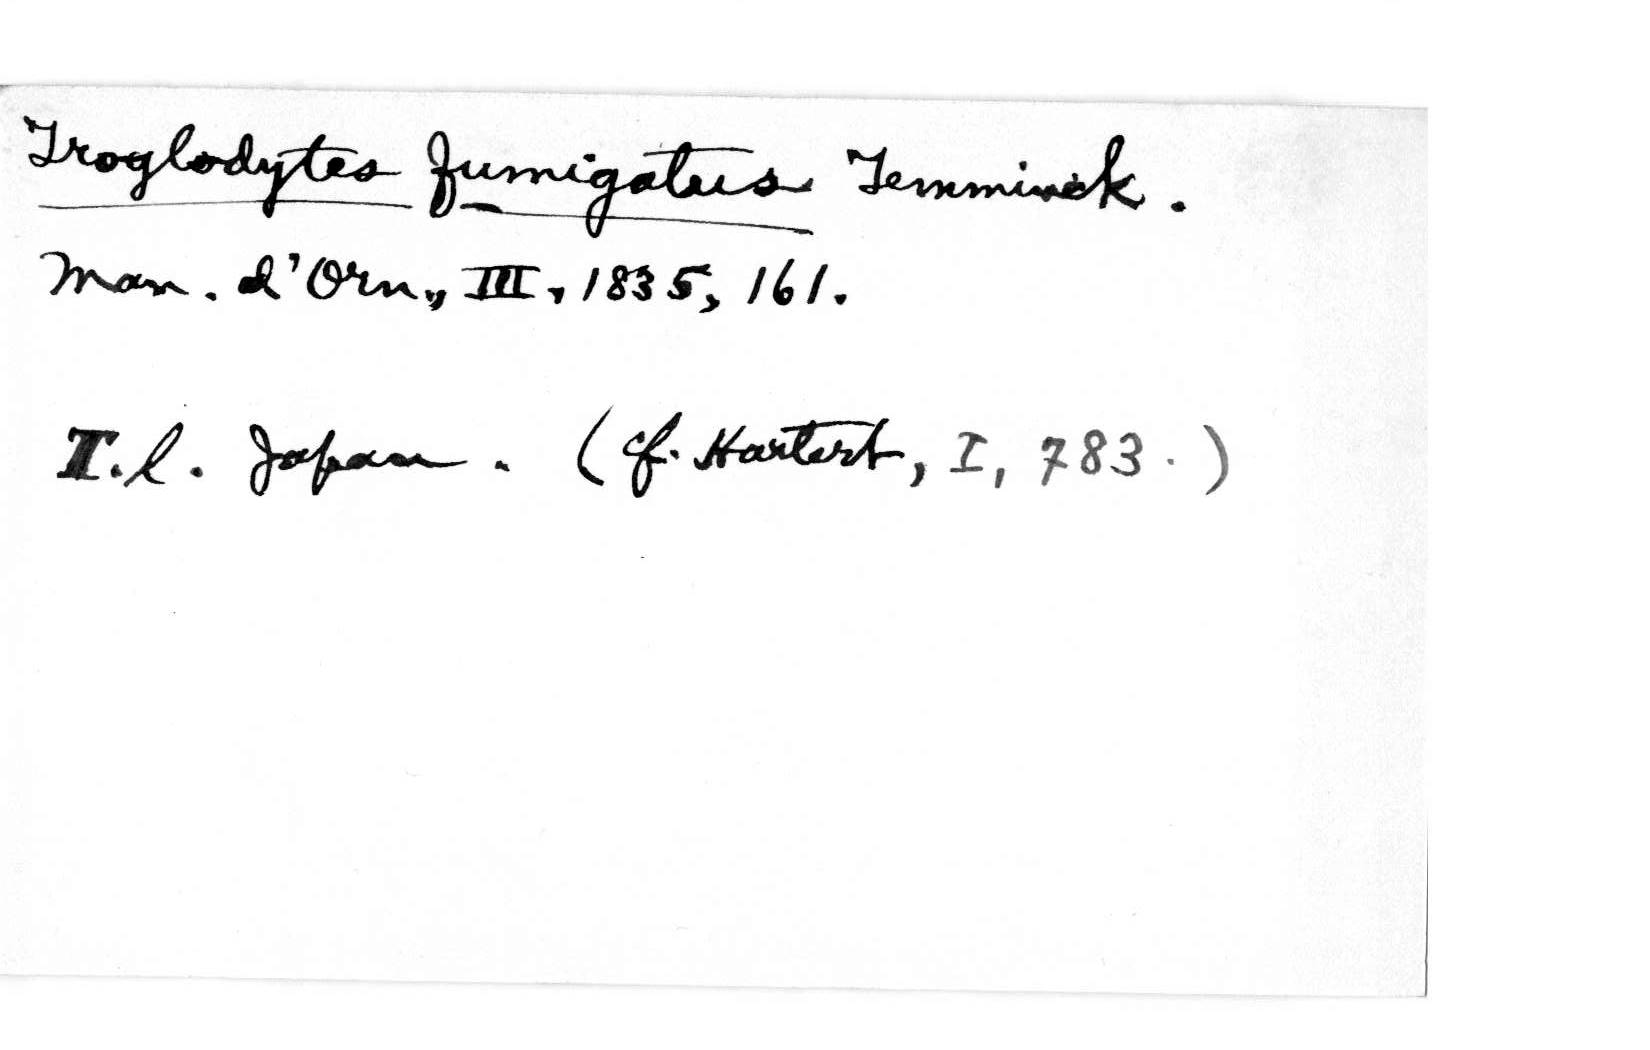 Troglodytes fumigatus Temminck.
Man. d'Orn., III, 1835, 161.
T.l. Japan. (cf. Hartert, I, 783.)